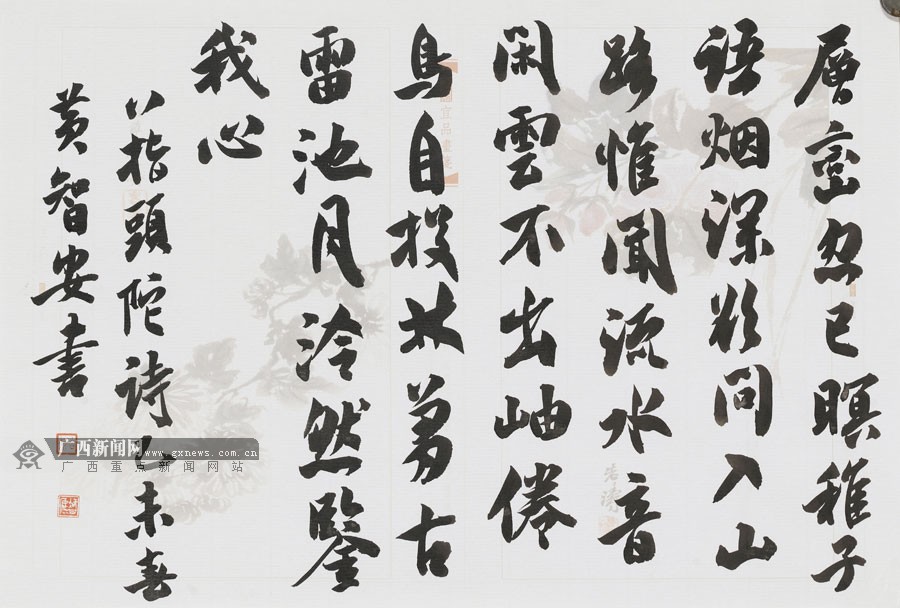 層巒忽已暝稚子
語烟深欲問入山
路惟聞流水音
閑雲不出岫倦
鳥自投林萬古
雷池月泠然鑒
我心
八指頭陀詩乙未春
黄智安書
广西新闻网
www.gxnews.com.cn
广西重点新闻网站